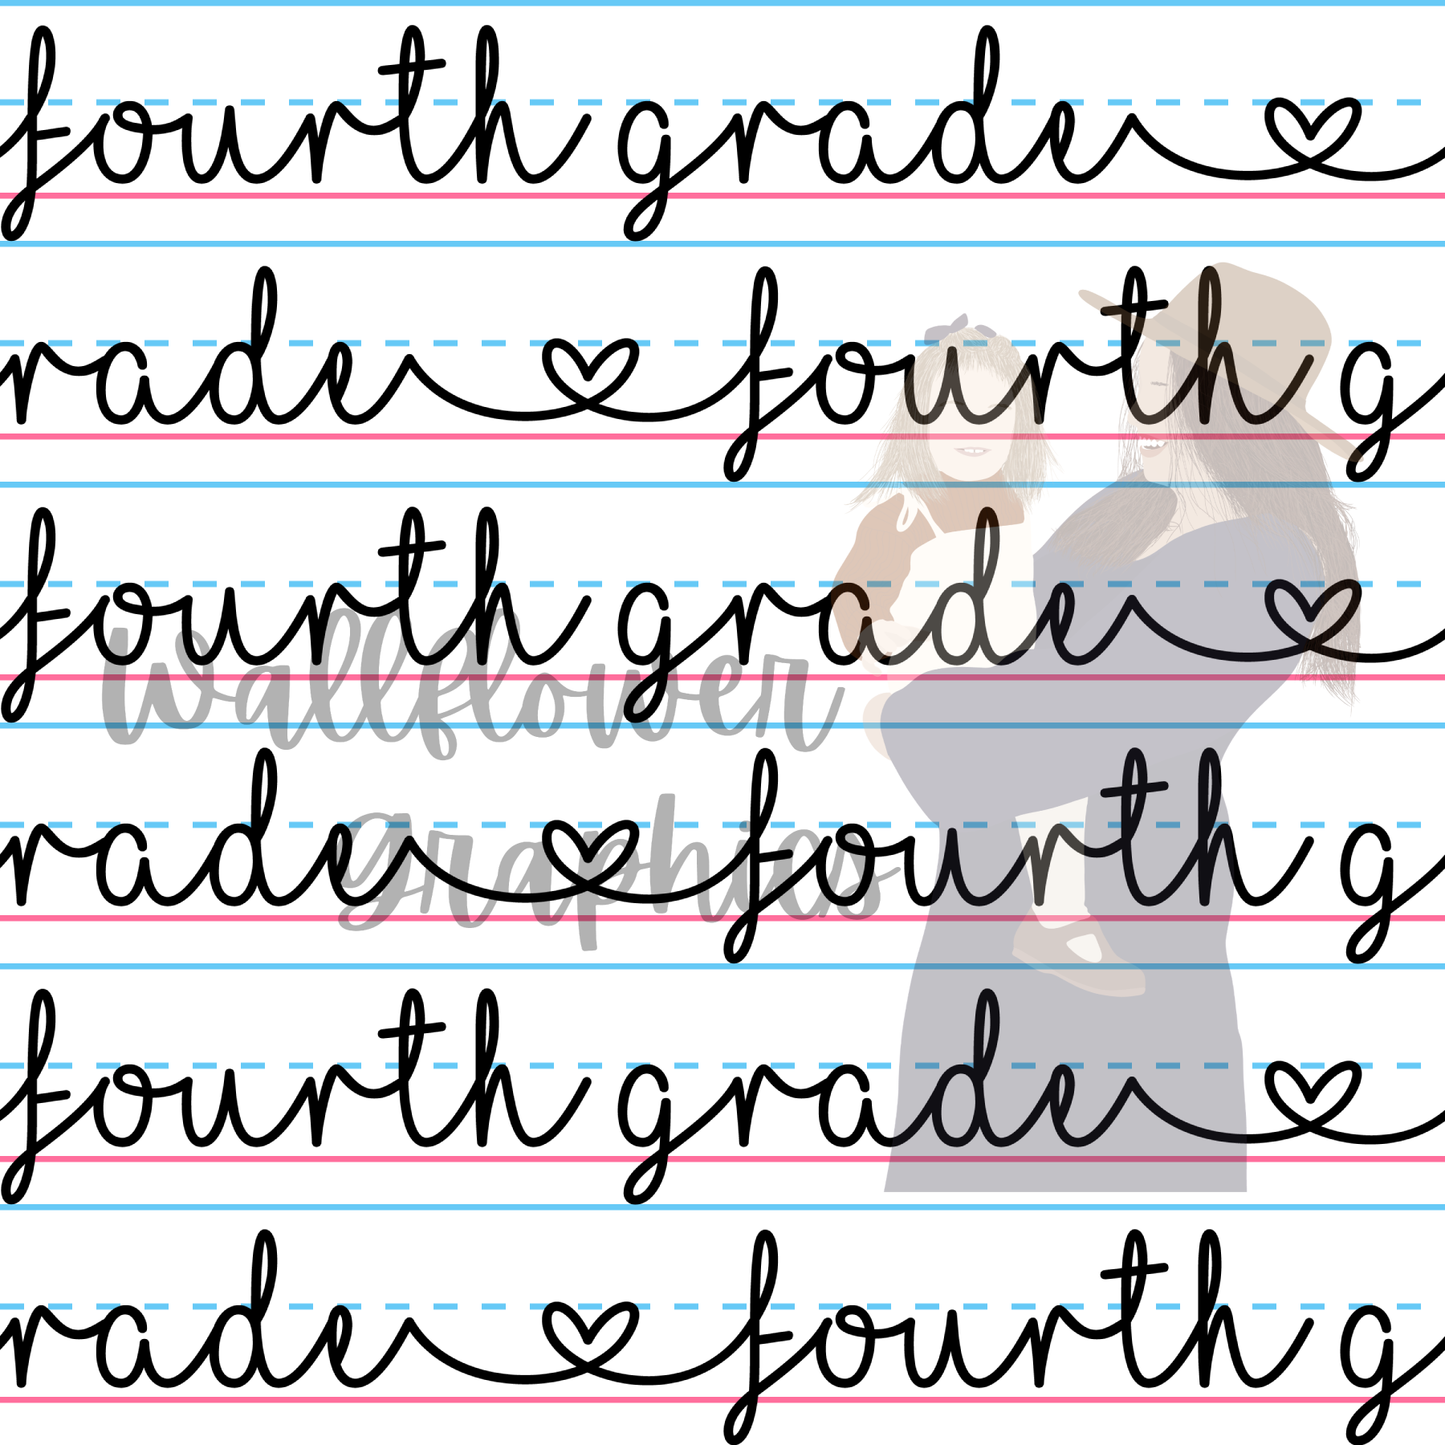 fourth grade
rade fourth g
fourth grade
wallflower
rade fourth g
graphics
fourth grade
rade fourth g